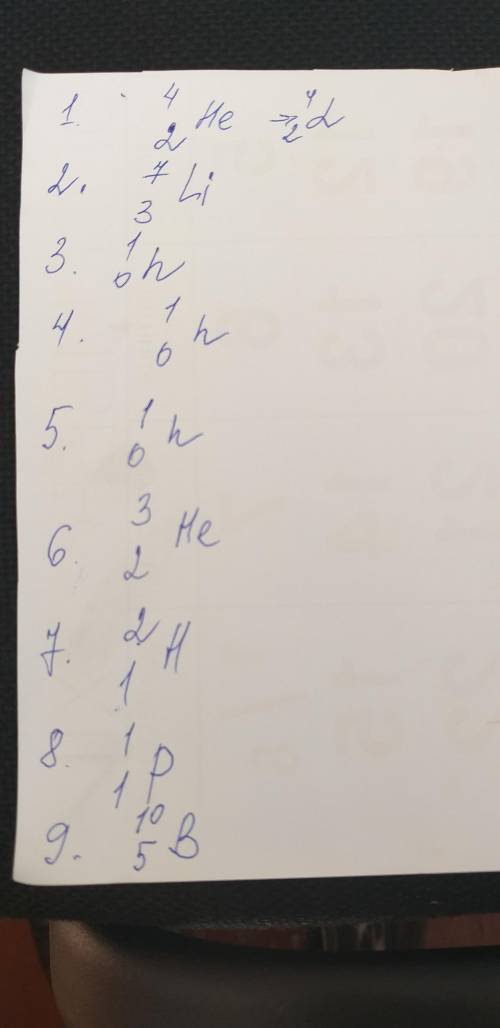 1. ⁴₂He → ⁴₂α
2. ⁷₃Li
3. ¹₀n
4. ¹₀n
5. ¹₀n
6. ³₂He
7. ²₁H
8. ¹₁p
9. ¹⁰₅B